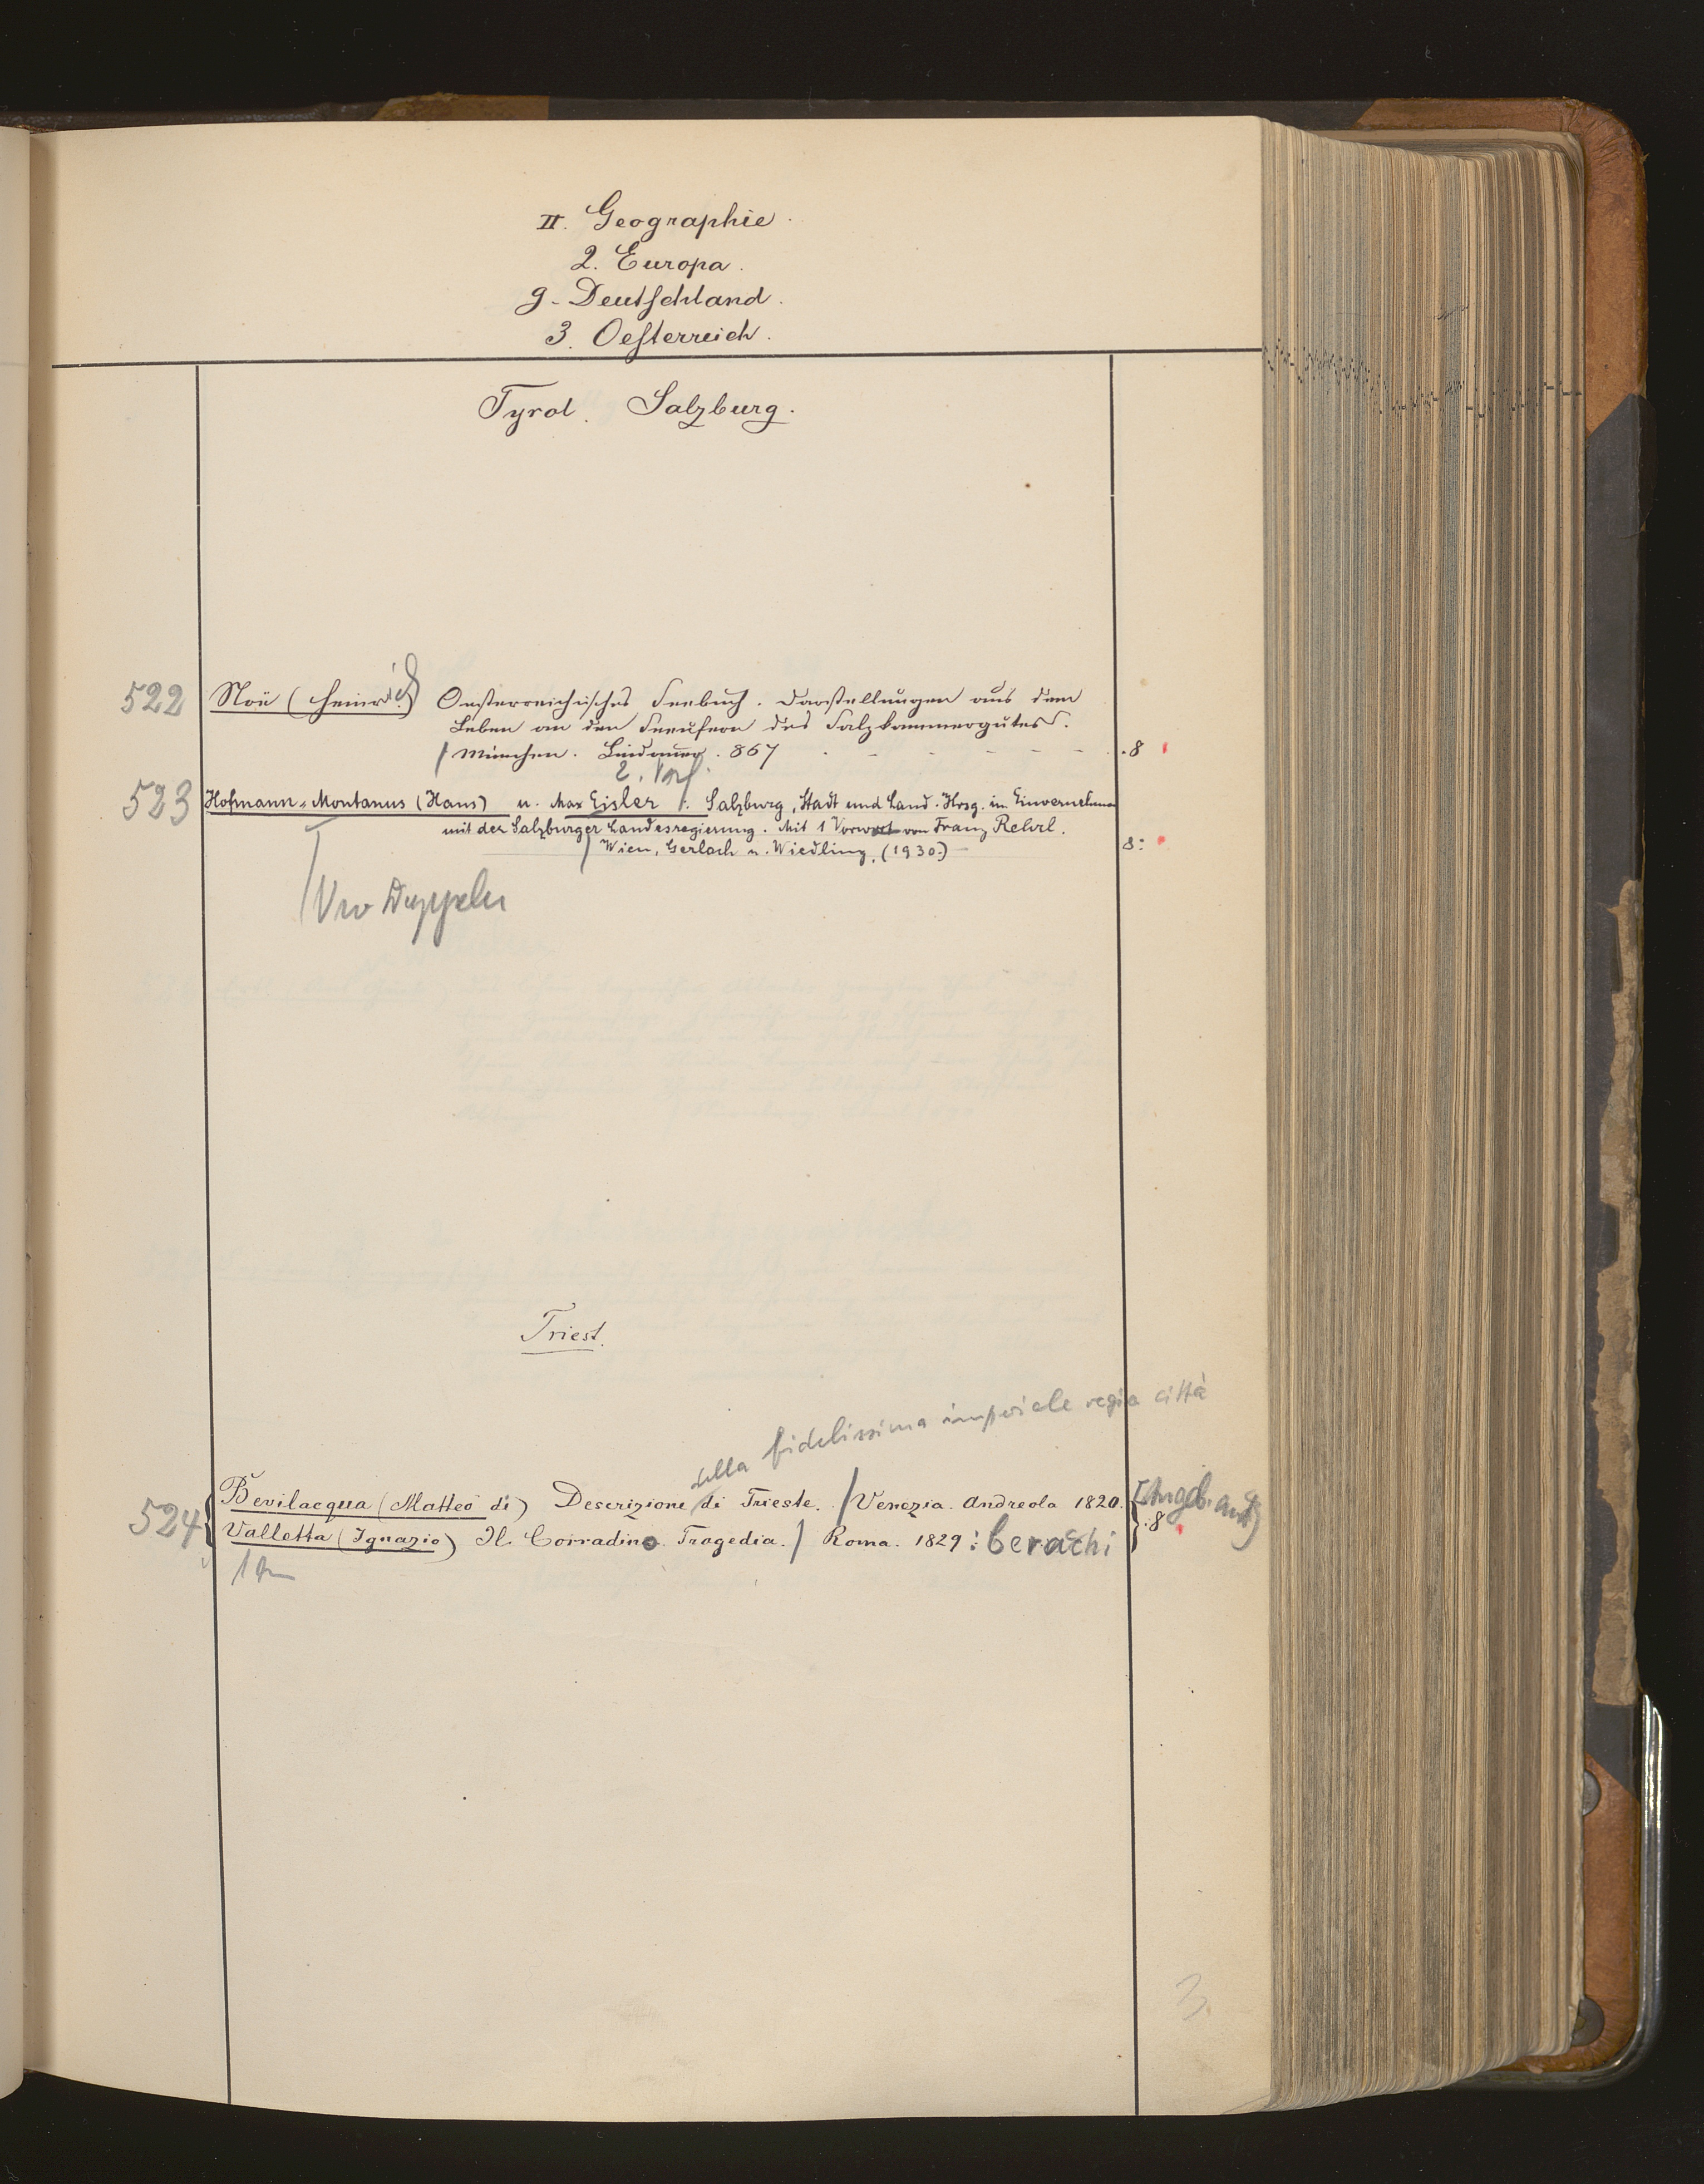 II. Geographie.
2. Europa.
g. Deutschland.
3. Oesterreich.
Tyrol. Salzburg.
522 Noë (Heinrich) Oesterreichisches Seebuch. Darstellungen aus dem
Leben an den Seeufern des Salzkammergutes.
/ München. Lindauer. 867 - - - - - . 8
2. Verf.
523 Hofmann-Montanus (Hans) u. Max Eisler /. Salzburg, Stadt und Land. Hrsg. im Einvernehmen
mit der Salzburger Landesregierung. Mit 1 Vorwort von Franz Rehrl.
/ Wien, Gerlach u. Wiedling. (1930.) 8:
Doppeln
Triest.
della fidelissima imperiale regia città
524 Bevilacqua (Matteo di) Descrizione di Trieste. / Venezia. Andreola 1820. [Angeb. an:]
Valletta (Ignazio) Il Corradino. Tragedia. / Roma. 1829 : Ceracchi . 8
3.